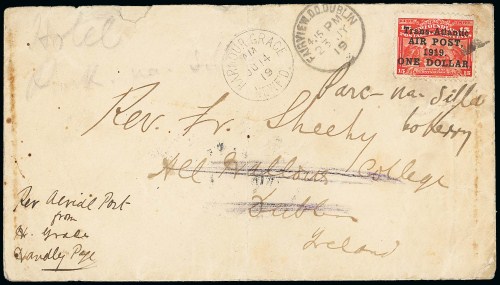 Hotel
HARBOUR GRACE
JU 14
19
NFL'D.
FAIRVIEW. D.O. DUBLIN
4.15 PM
19
15 NEWFOUNDLAND 15
Trans-Atlantic
AIR POST,
1919.
ONE DOLLAR.
Parc-na-Silla
Co Kerry
Rev. Fr. Sheehy
All Hallows College
Dublin
Ireland
Per Aerial Post
from
Hr. Grace
Handley Page